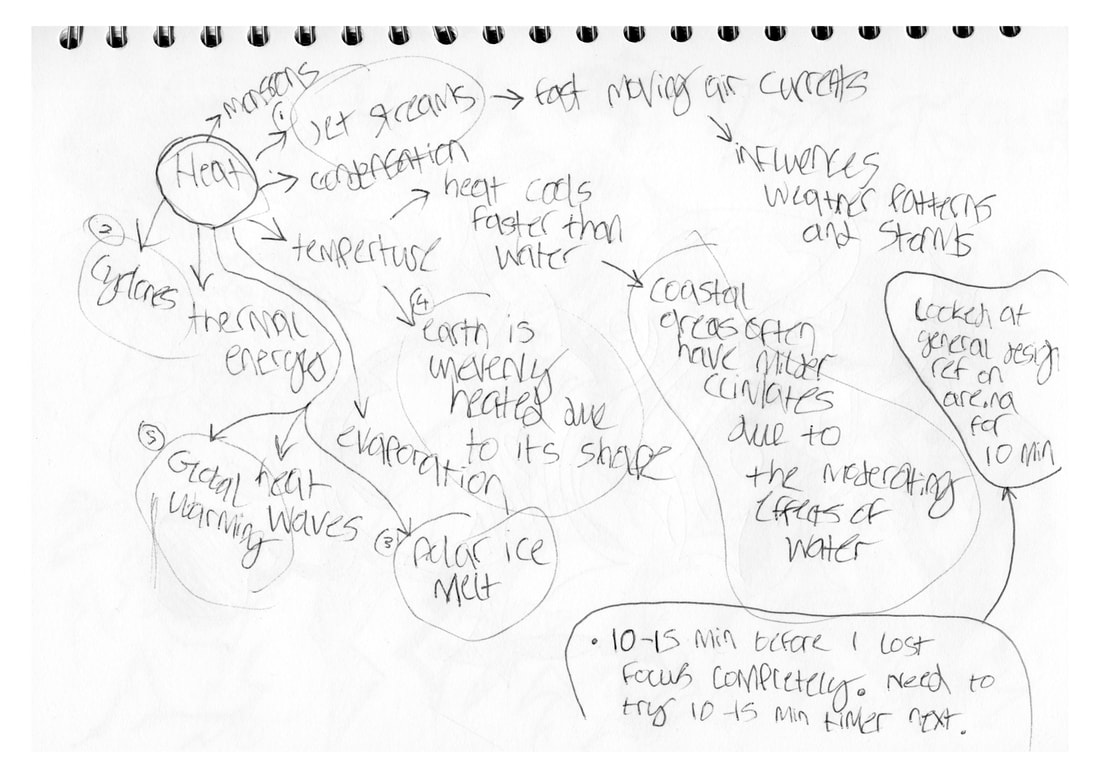 monsoons
① Jet streams → fast moving air currents
influences
weather patterns
and storms
Heat
condensation
heat cools
faster than
water
temperture
②
cyclones
thermal
energy
④
earth is
unevenly
heated due
to its shape
coastal
areas often
have milder
climates
due to
the moderating
effects of
water
Looked at
general design
ref on
arena
for
10 min
evaporation
⑤
Global
warming
heat
waves
③
polar ice
melt
• 10-15 min before I lost
focus completely. Need to
try 10-15 min timer next.